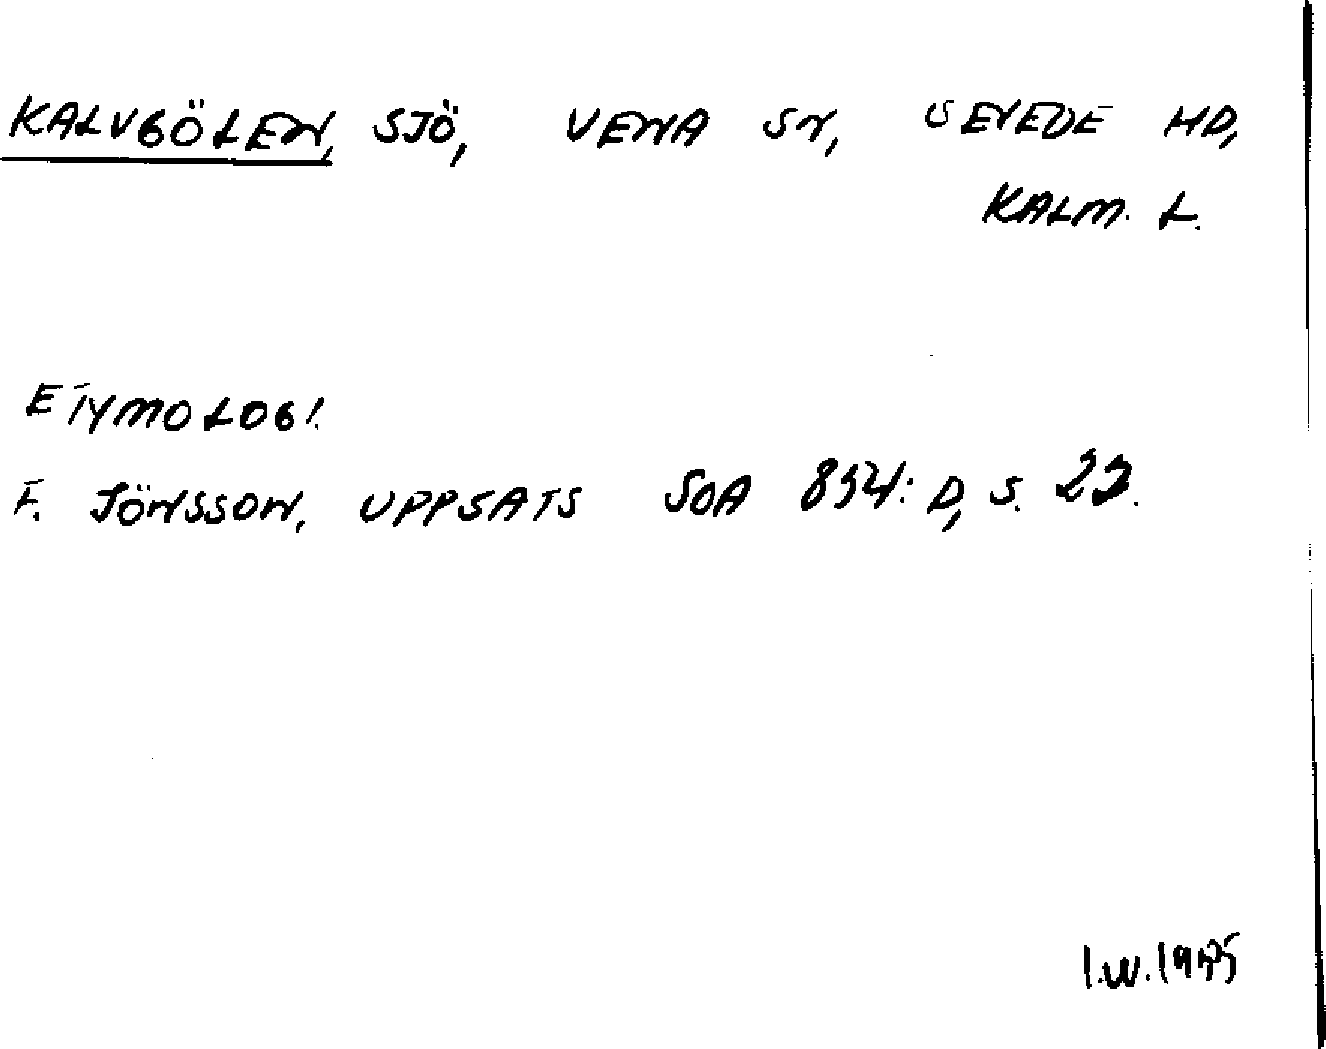 KALVGÖLEN, SJÖ, VENA SN, SEVEDE HD,
KALM. L.
ETYMOLOGI.
F. JÖNSSON, UPPSATS SOA 834: D, S. 22.
I.W. 1975